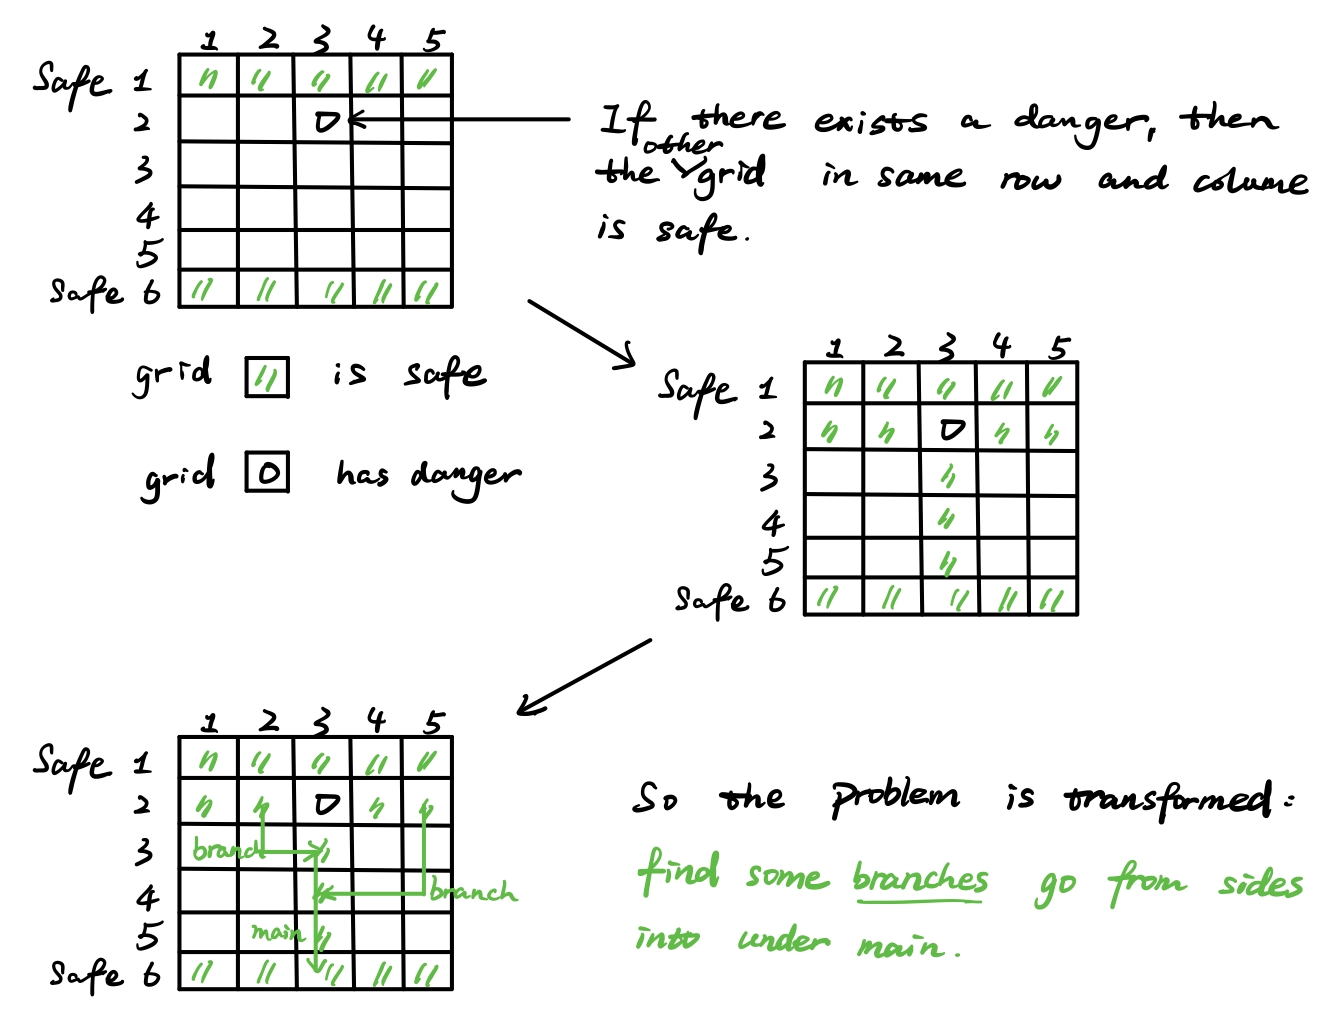 1 2 3 4 5
Safe 1
2
3
4
5
Safe 6
0
If there exists a danger, then
other
the grid in same row and colume
is safe.
grid is safe
grid 0 has danger
1 2 3 4 5
Safe 1
2 0
3
4
5
Safe 6
1 2 3 4 5
Safe 1
2 0
3 branch
4 branch
5 main
Safe 6
So the problem is transformed:
find some branches go from sides
into under main.